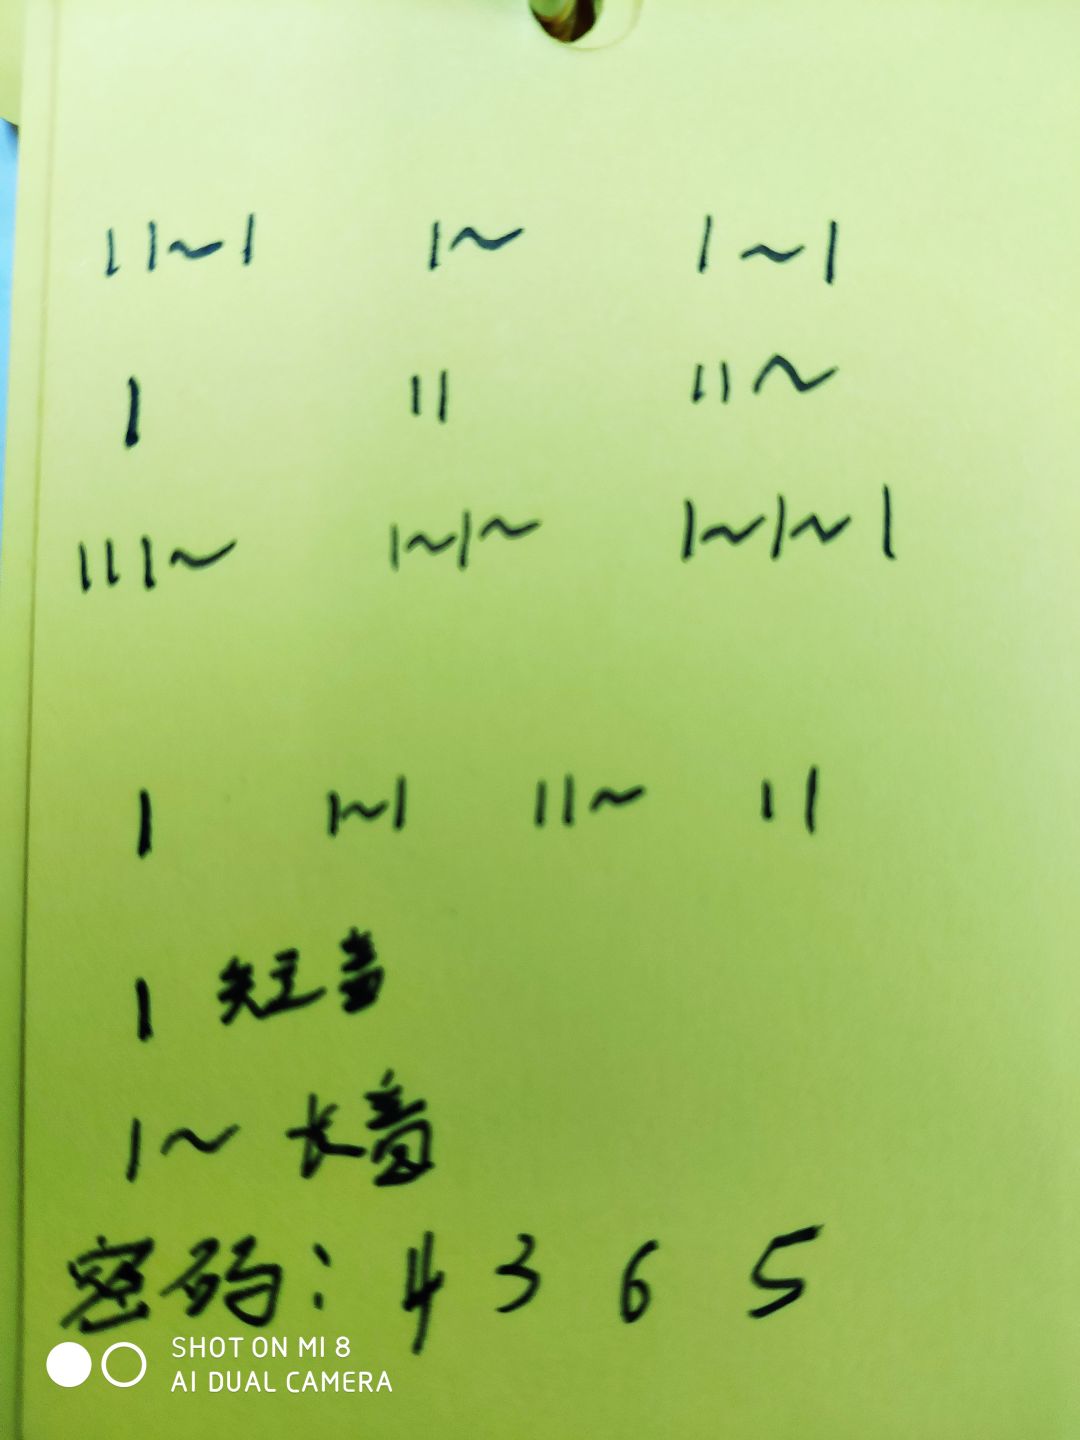 11~1 1~ 1~1
1 11 11~
111~ 1~1~ 1~1~1
1 1~1 11~ 11
1 短音
1~ 长音
密码: 4 3 6 5
SHOT ON MI 8
AI DUAL CAMERA